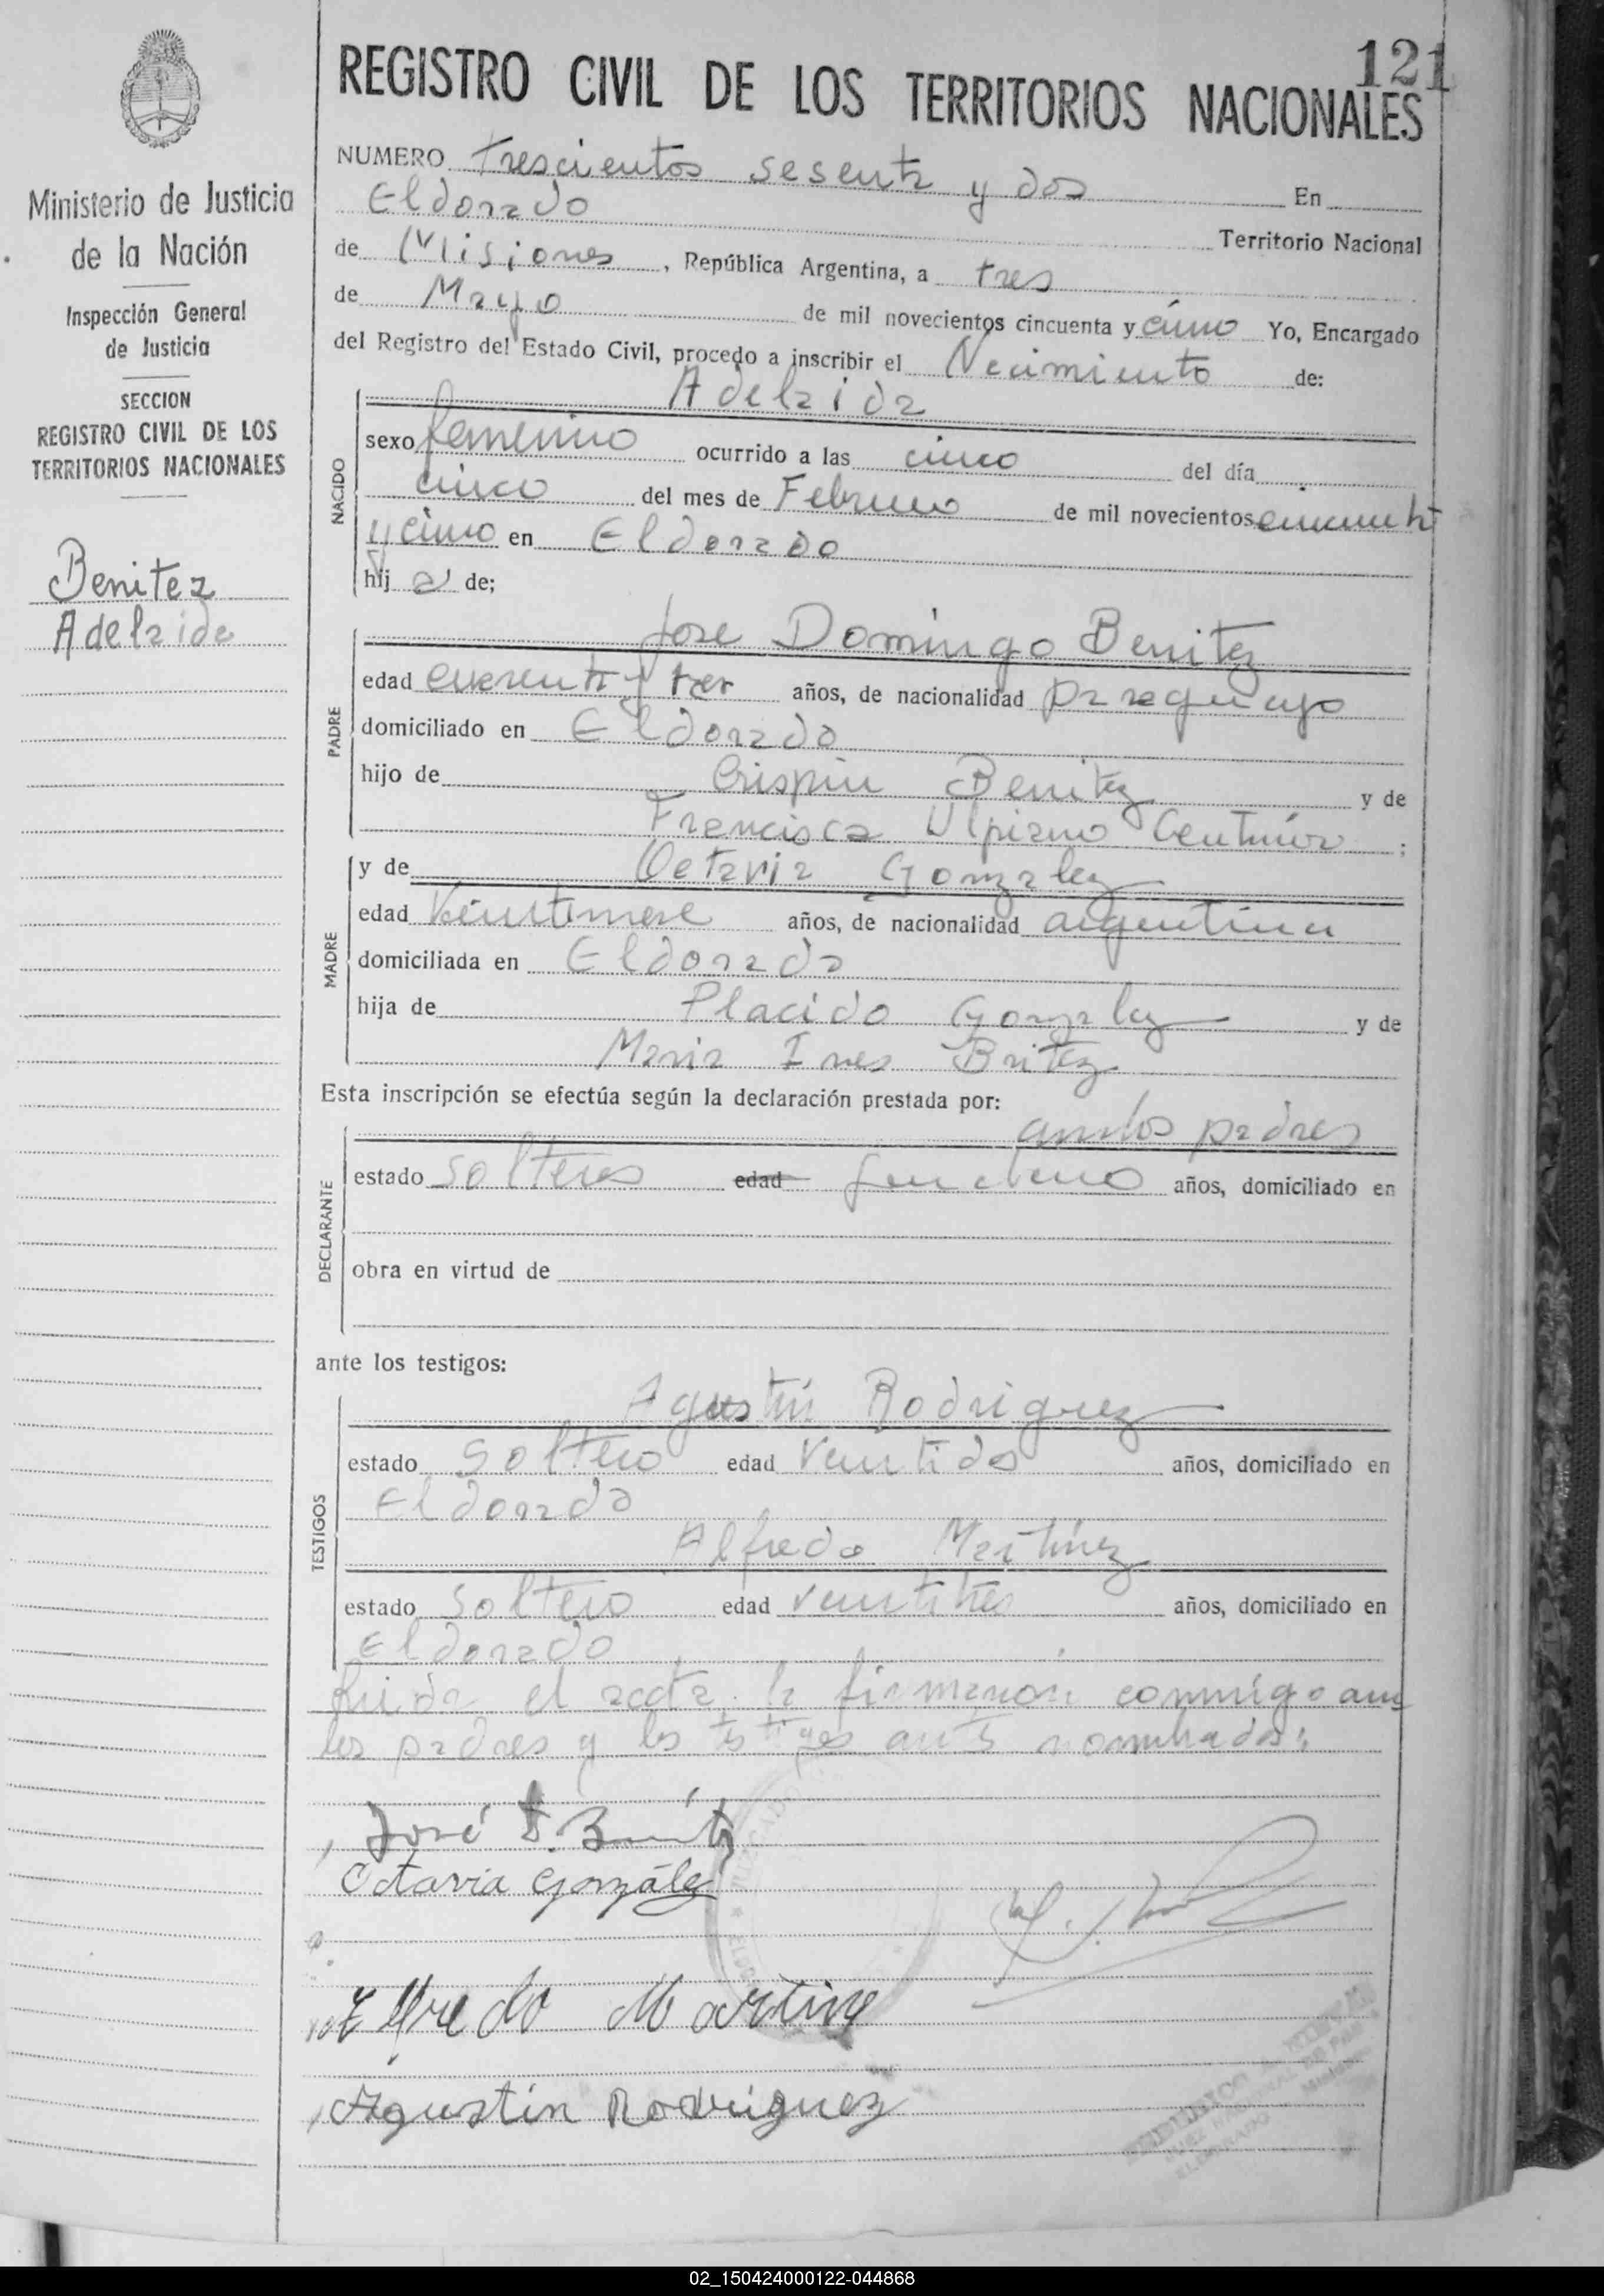 121
REGISTRO CIVIL DE LOS TERRITORIOS NACIONALES
Ministerio de Justicia
de la Nación
Inspección General
de Justicia
SECCION
REGISTRO CIVIL DE LOS
TERRITORIOS NACIONALES
Benitez
Adelaida
NUMERO trescientos sesenta y dos En
Eldorado Territorio Nacional
de Misiones, República Argentina, a tres
de Mayo de mil novecientos cincuenta y cinco Yo, Encargado
del Registro del Estado Civil, procedo a inscribir el Nacimiento de:
NACIDO
Adelaida
sexo femenino ocurrido a las cinco del día
cinco del mes de Febrero de mil novecientos cincuenta
y cinco en Eldorado
hij a de;
PADRE
Jose Domingo Benitez
edad cuarenta y tres años, de nacionalidad paraguayo
domiciliado en Eldorado
hijo de Crispin Benitez y de
Francisca Ulpiano ;
MADRE
y de Octavia Gonzalez
edad años, de nacionalidad argentina
domiciliada en Eldorado
hija de Placido Gonzalez y de
Maria Ines Britez
Esta inscripción se efectúa según la declaración prestada por:
DECLARANTE
ambos padres
estado solteros edad años, domiciliado en
obra en virtud de
ante los testigos:
TESTIGOS
Agustin Rodriguez
estado Soltero edad Veintidos años, domiciliado en
Eldorado
Alfredo Martínez
estado Soltero edad veintitres años, domiciliado en
Eldorado
el acta la firmaron conmigo ambos
los padres y los testigos antes nombrados:
José D. Benítez
Octavia González
Alfredo Martinez
Agustin Rodriguez
ELDORADO
02_150424000122-044868